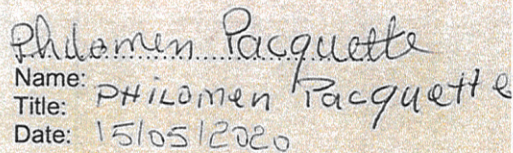 Philomen Pacquette
Name:
Title: PHiLOMen Pacquette
Date: 15/05/2020